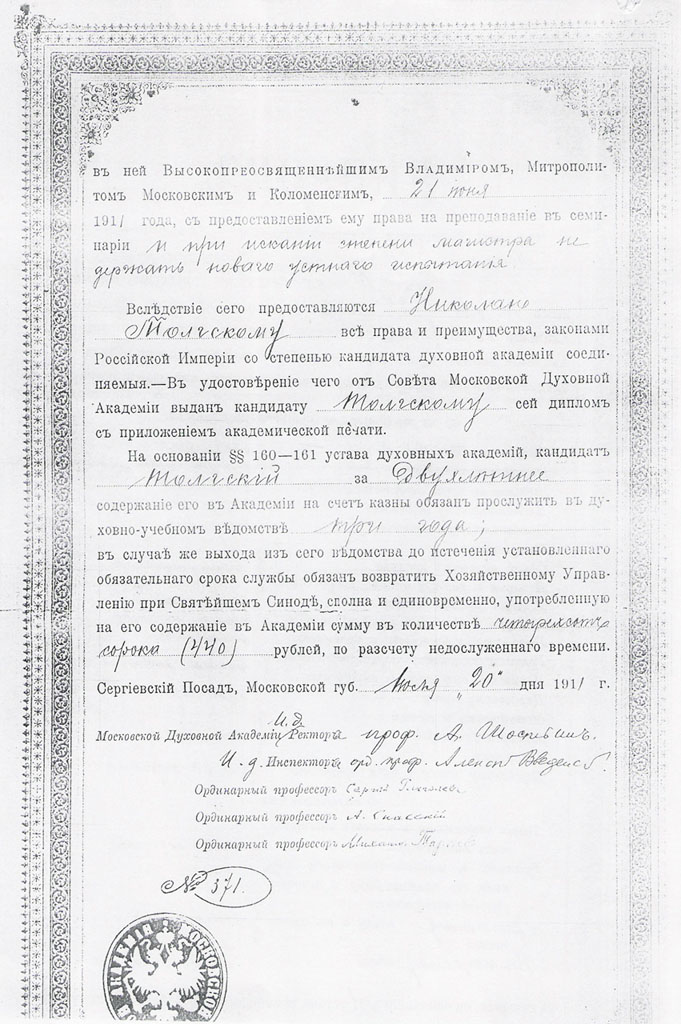 въ ней Высокопреосвященнѣйшимъ Владиміромъ, Митрополи-
томъ Московскимъ и Коломенскимъ, 21 іюня
1911 года, съ предоставленіемъ ему права на преподаваніе въ семи-
наріи и при исканіи степени магистра не
держать новаго устнаго испытанія
Вслѣдствіе сего предоставляются Николаю
Толгскому всѣ права и преимущества, законами
Россійской Имперіи со степенью кандидата духовной академіи соеди-
няемыя.—Въ удостовѣреніе чего отъ Совѣта Московской Духовной
Академіи выданъ кандидату Толгскому сей дипломъ
съ приложеніемъ академической печати.
На основаніи §§ 160—161 устава духовныхъ академій, кандидатъ
Толгскій за двухлѣтнее
содержаніе его въ Академіи на счетъ казны обязанъ прослужить въ ду-
ховно-учебномъ вѣдомствѣ три года;
въ случаѣ же выхода изъ сего вѣдомства до истеченія установленнаго
обязательнаго срока службы обязанъ возвратить Хозяйственному Управ-
ленію при Святѣйшемъ Синодѣ, сполна и единовременно, употребленную
на его содержаніе въ Академіи сумму въ количествѣ четыреста
сорока (440) рублей, по разсчету недослуженнаго времени.
Сергіевскій Посадъ, Московской губ. Іюля „20" дня 1911 г.
И. д.
Московской Духовной Академіи Ректора проф. А.
И. д. Инспектора орд. проф. Алексѣй Введенск
Ординарный профессоръ Сергѣй Глаголевъ
Ординарный профессоръ А. Спасскій
Ординарный профессоръ Михаилъ
№ 371.
АКАДЕМІЯ МОСКОВСКО